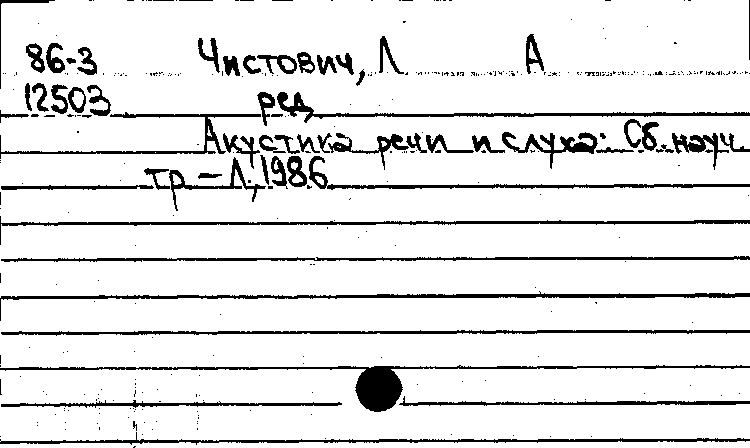 86-3 Чистович, Л А
12503 ред
Акустика речи и слуха: Сб. науч
тр – Л, 1986